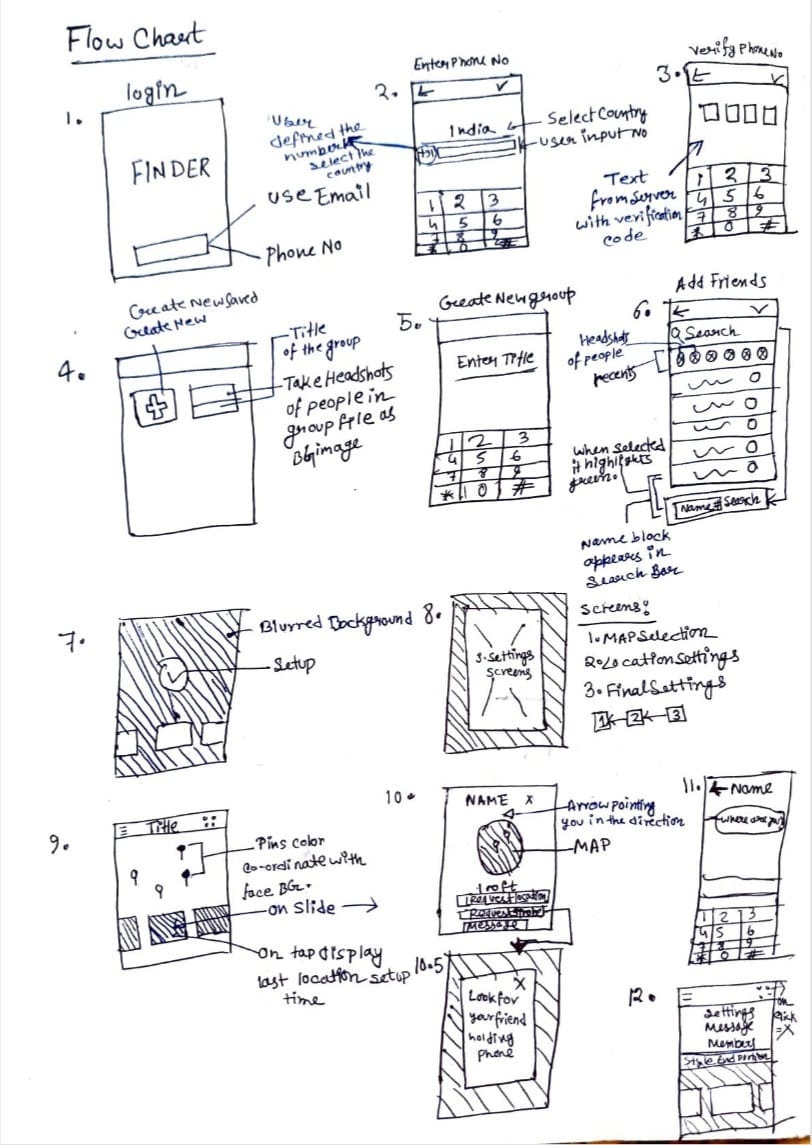 Flow Chart
1.
login
FINDER
Use Email
Phone No
2.
Enter Phone No
India
Select Country
User input No
User
defined the
number
select the
country
1 2 3
4 5 6
7 8 9
* 0 #
3.
Verify Phone No
Text
from server
with verification
code
1 2 3
4 5 6
7 8 9
* 0 #
4.
Create New Saved
Create New
Title
of the group
Take Headshots
of people in
group as
BG image
5.
Create New group
Enter Title
1 2 3
4 5 6
7 8 9
* 0 #
6.
Add Friends
Search
Headshots
of people
recents
When selected
it highlights
green.
Name # Search
Name block
appears in
Search Bar
7.
Blurred Background
Setup
8.
3. Settings
Screens
Screens:
1. MAP Selection
2. Location Settings
3. Final Settings
1 2 3
9.
Title
Pins color
co-ordinate with
face BG.
On Slide
On tap display
last location setup
time
10.
NAME X
Arrow pointing
you in the direction
MAP
10 ft
Request location
Request
Message
10.5
X
Look for
your friend
holding
phone
11.
Name
Where are you
1 2 3
4 5 6
7 8 9
* 0 #
12.
on
click
= X
Settings
Message
Members